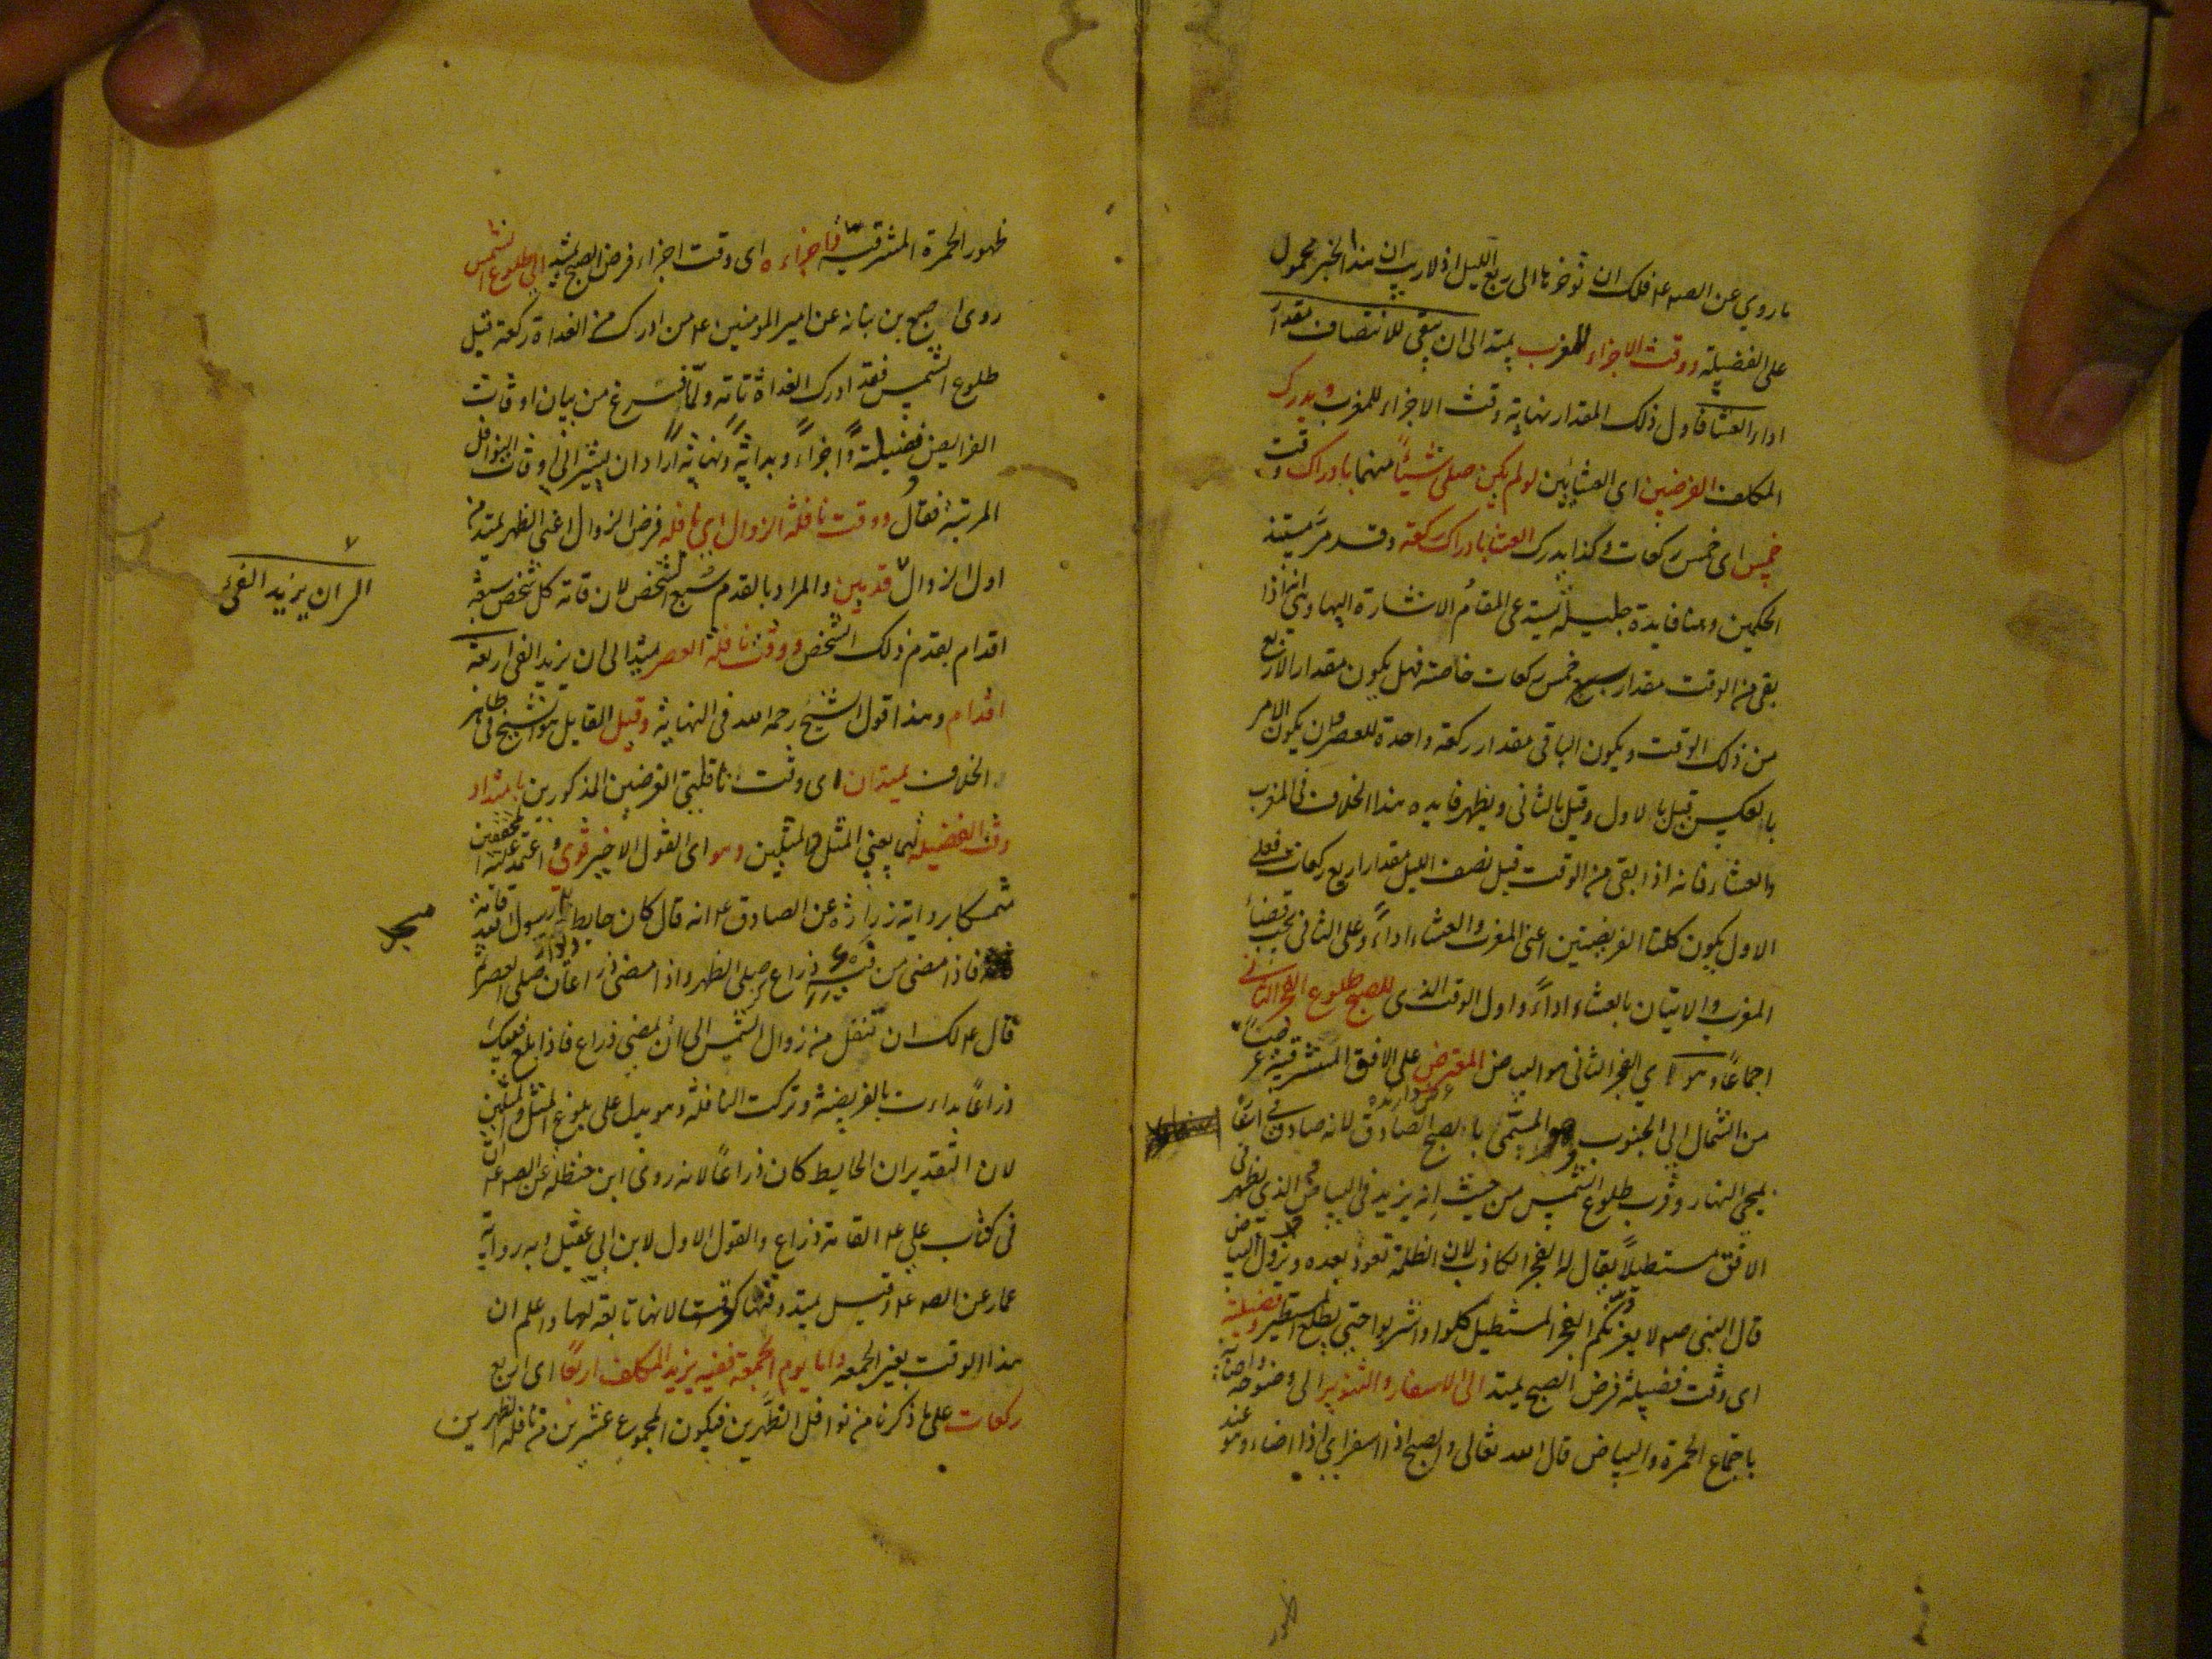 ما روي عن الصه ع فلك ان تؤخرها الى ربع الليل اذ لا ريب ان هذا الخبر محمول
على الفضيلة ووقت الاجزاء للمغرب يمتد الى ان يبقى للانتصاف مقدار
اداء العشاء فاول ذلك المقدار نهاية وقت الاجزاء للمغرب ويدرك
المكلف الفرضين اي العشايين لو لم يكن صلى شيئاً منهما بادراك وقت
خمس اى خمس ركعات وكذا يدرك العشا بادراك ركعة وقد مر مستند
الحكمين وهنا فايدة جليلة يستدعى المقام الاشارة اليها وهى انه اذا
بقى من الوقت مقدار خمس ركعات خاصة فهل يكون مقدار الاربع
من ذلك الوقت ويكون الباقى مقدار ركعة واحدة للعصر او يكون الامر
بالعكس قيل بالاول وقيل بالثانى ويظهر فايده هذا الخلاف فى المغرب
والعشاء فانه اذا بقى من الوقت قبل نصف الليل مقدار اربع ركعات فعلى
الاول يكون كلتا الفريضتين اعنى المغرب والعشاء اداءً وعلى الثانى يجب قضاء
المغرب والاتيان بالعشاء اداءً واول الوقت الذى للصبح طلوع الفجر الثانى
اجماعاً وهو اي الفجر الثانى هو البياض المعترض على الافق المشرقية عرضاً
من الشمال الى الجنوب وهو المسمى بالصبح الصادق لانه صادق فى اعلامه
لمجى النهار وقرب طلوع الشمس من حيث انه يزيد فى البياض الذى يظهر فى
الافق مستطيلاً يقال له الفجر الكاذب لان الظلمة تعود بعده ويزول البياض
قال النبى صه لا يغرنكم الفجر المستطيل كلوا واشربوا حتى يطلع المستطير وفضيلته
اى وقت فضيلة فرض الصبح يمتد الى الاسفار والتنوير الى وضوحه واضائته
باجتماع الحمرة والبياض قال الله تعالى والصبح اذا اسفر اي اذا اضاء وهو عند
ظهور
ظهور الحمرة المشرقية فاجزاءه اى وقت اجزاء فرض الصبح يمتد الى طلوع الشمس
روى اصبح بن نباته عن امير المومنين ع من ادرك من الغداة ركعة قبل
طلوع الشمس فقد ادرك الغداة تامة ولما فرغ من بيان اوقات
الفرايض فضيلة واجزاءً وبداية ونهاية اراد ان يشير الى اوقات النوافل
المرتبة فقال ووقت نافلة الزوال اى نافله فرض الزوال اعنى الظهر يمتد من
اول الزوال قدمين والمراد بالقدم سبع الشخص لان قامة كل شخص سبعة
اقدام بقدم ذلك الشخص ووقت نافلة العصر يمتد الى ان يزيد الفئ اربعة
اقدام وهذا قول الشيخ رحمه الله فى النهاية وقيل القايل هو الشيخ فى ظاهر
الخلاف يمتدان اى وقت نافلتى الفرضين المذكورين بامتداد
وقت الفضيلة لهما يعنى المثل والمثلين وهو اى القول الاخير قوي واعتمد عليه المحققين
تمسكا برواية زرارة عن الصادق ع انه قال كان حايط رسول الله قامة
فاذا مضى من فيئه ذراع صلى الظهر واذا مضى ذراعان صلى العصر ثم
قال ع لك ان تتنفل من زوال الشمس الى ان يمضى ذراع فاذا بلغ فيئك
ذراعاً بداءت بالفريضة وتركت النافلة وهو يدل على بلوغ المثل والمثلين
لان التقدير ان الحايط كان ذراعاً لانه روى ابن حنظلة عن الصه ع ان
فى كتاب على ع القامة ذراع والقول الاول لابن ابي عقيل وبه رواية
عمار عن الصه ع وقيل يمتد وقتها كوقتها لانها تابعة لها واعلم ان
هذا الوقت بغير الجمعه واما يوم الجمعة ففيه يزيد المكلف اربعاً اى اربع
ركعات على ما ذكرنا من نوافل الظهرين فيكون المجموع عشرين من نافله الظهرين
الى ان يزيد الفئ